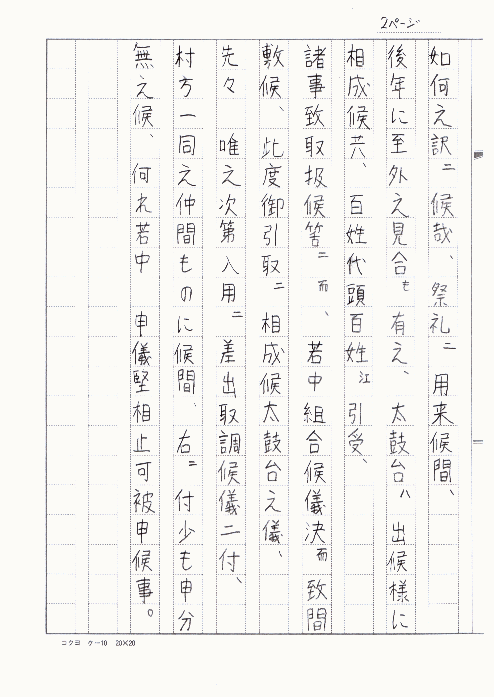 2ページ
如何之訳ニ候哉、祭礼ニ用来候間、
後年に至外之見合も有之、太鼓台ハ出候様に
相成候共、百姓代頭百姓江引受、
諸事致取扱候筈ニ而、若中組合候儀決而致間
敷候、此度御引取ニ相成候太鼓台之儀、
先々唯之次第入用ニ差出取調候儀ニ付、
村方一同之仲間ものに候間、右ニ付少も申分
無之候、何れ若中申儀堅相止可被申候事。
コクヨ ケー10 20×20